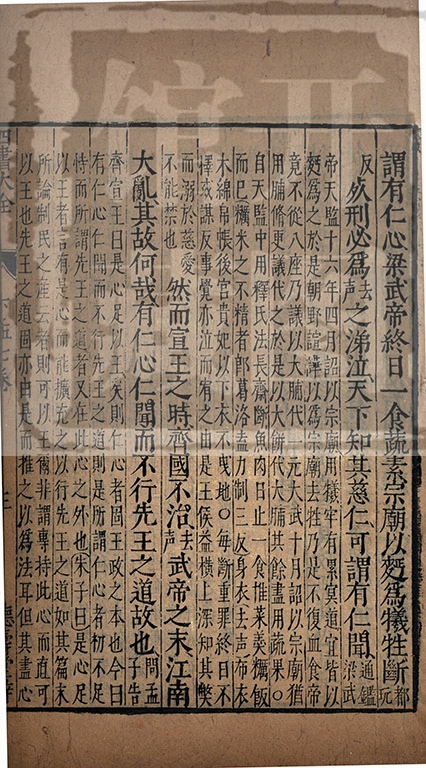 謂有仁心梁武帝終日一食蔬素宗廟以麪為犧牲斷都玩
反死刑必為去聲之涕泣天下知其慈仁可謂有仁聞通鑑梁武
帝天監十六年四月詔以宗廟用犧牲有累冥道宜皆以
麪為之於是朝野諠譁以為宗廟去牲乃是不復血食帝
竟不從八座乃議以大脯代一元大武十月詔以宗廟猶
用脯脩更議代之於是以大餅代大脯其餘盡用蔬果○
自天監中用釋氏法長齋斷魚肉日止一食惟菜羮糲飯
而巳糲米之不精者郎葛洛盍力制三反身衣去声布衣
木綿帛帳後宮貴妃以下衣不曳地○每斷重罪終日不
懌或謀反事覺亦泣而宥之由是王侯益橫上深知其弊
而溺於慈愛不能禁也然而宣王之時齊國不治去声武帝之末江南
大亂其故何哉有仁心仁聞而不行先王之道故也問孟子告
齊宣王曰是心足以王矣則仁心者固王政之本也今曰
有仁心仁聞而不行先王之道則是所謂仁心者初不足
恃而所謂先王之道者又在此心之外也朱子曰是心足
以王者言有是心而能擴充之以行先王之道如其篇末
所論制民之産云者則可以王爾非謂專恃此心而直可
以王也先王之道固亦由是而推之以為法耳但其盡心
四書大全
下孟七卷
三